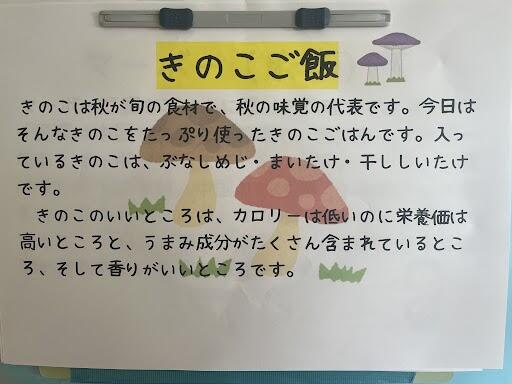 きのこご飯
きのこは秋が旬の食材で、秋の味覚の代表です。今日は
そんなきのこをたっぷり使ったきのこごはんです。入っ
ているきのこは、ぶなしめじ・まいたけ・干ししいたけ
です。
　きのこのいいところは、カロリーは低いのに栄養価は
高いところと、うまみ成分がたくさん含まれているとこ
ろ、そして香りがいいところです。